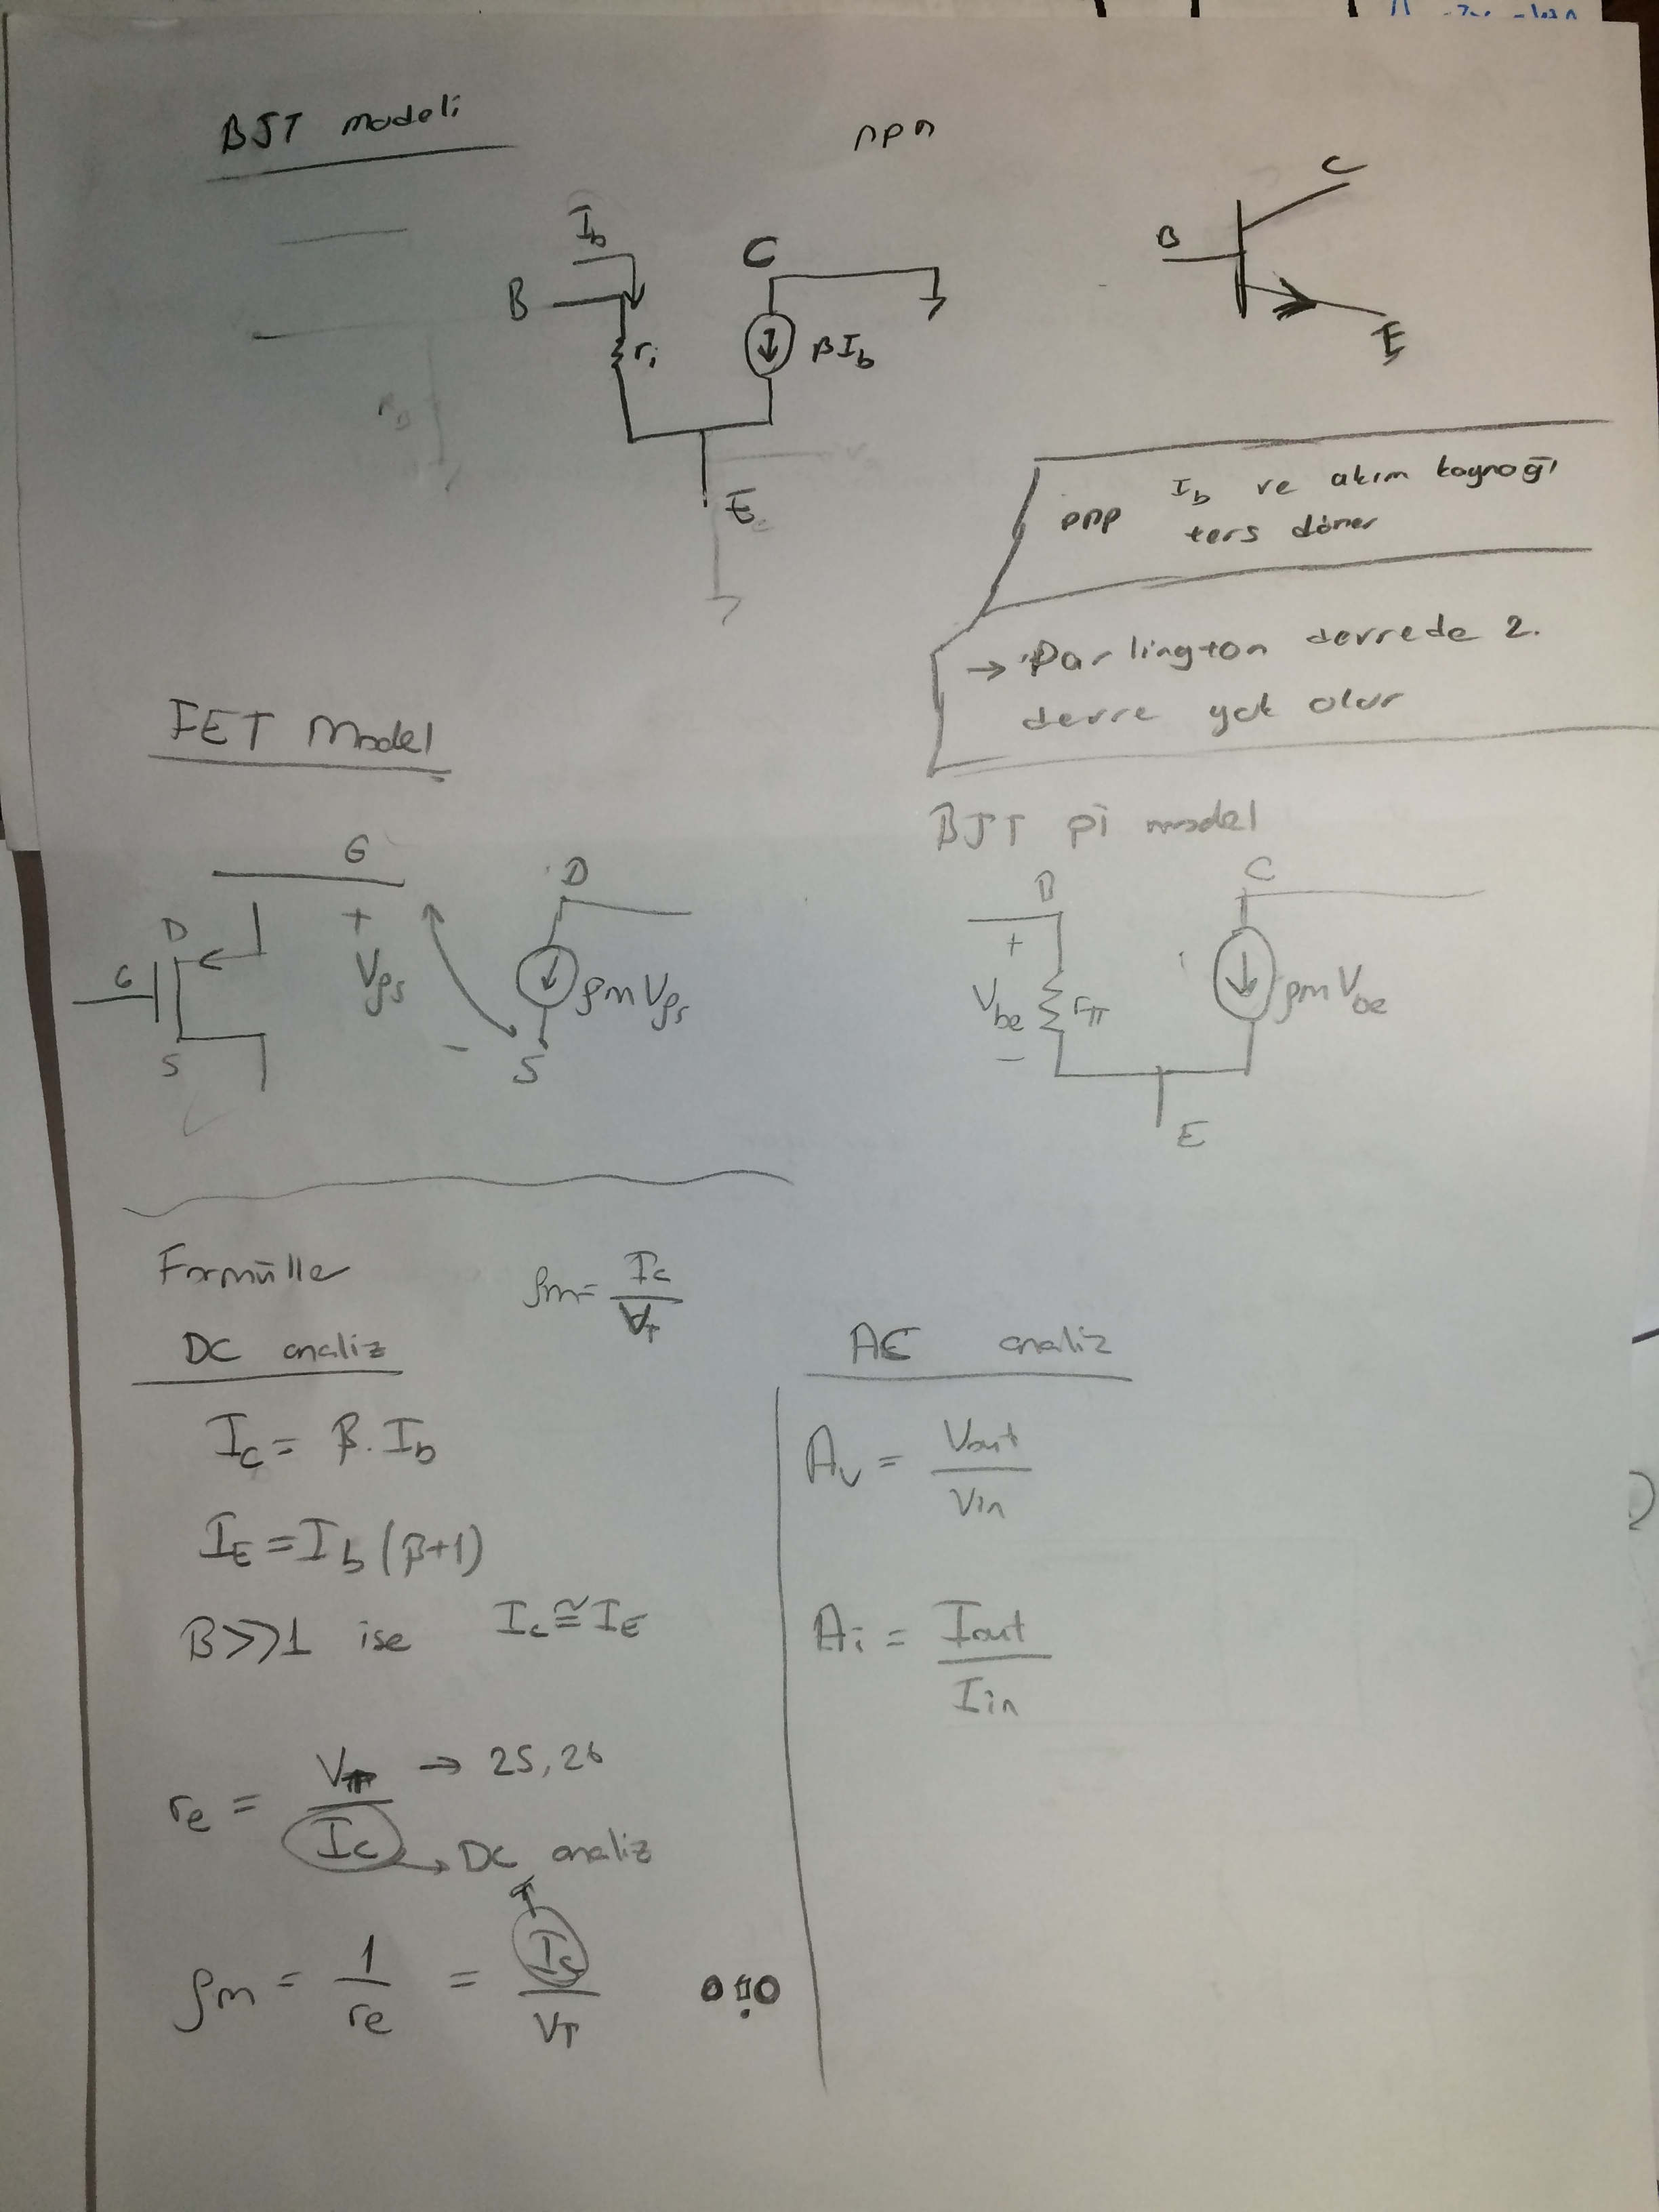 BJT modeli
npn
Ib
B
ri
C
βIb
E
B
C
E
pnp Ib ve akım kaynağı
ters döner
→ Darlington devrede 2.
devre yok olur
FET Model
G
+
Vgs
-
D
gmVgs
S
D
G
S
BJT pi model
B
+
Vbe
-
rπ
C
gmVbe
E
Formülle
gm = Ic / VT
DC analiz
Ic = β.Ib
IE = Ib(β+1)
B>>1 ise Ic ≅ IE
re = VT / Ic → 25,26
→ DC analiz
gm = 1 / re = Ic / VT
AC analiz
Av = Vout / Vin
Ai = Iout / Iin